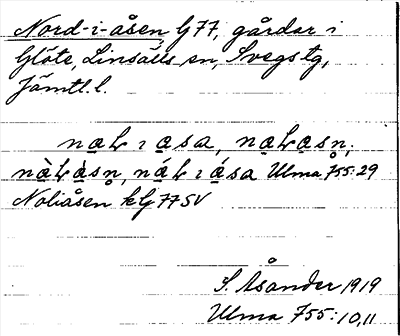 Nord-i-åsen G77, gårdar i
Glöte, Linsälls sn, Svegs tg,
Jämtl. l.
nɑ̱Ł ı ɑ̱sa, nɑ̱Łɑ̱sn̥,
nɑ̱̀Łɑ̱̀sn̥, nɑ̱́Ł ı ɑ̱́sa Ulma 755:29
Noliåsen kG 77 SV
Å
S. Åsander 1919
Ulma 755:10,11